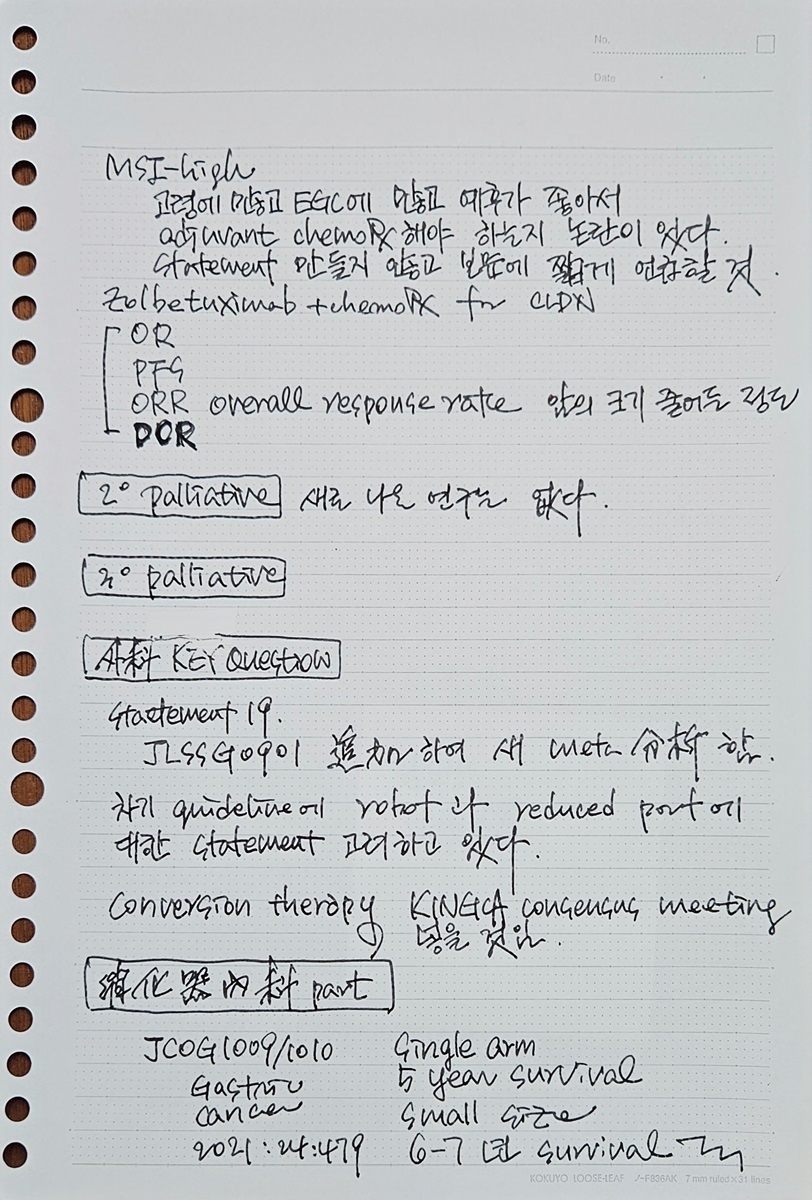 No.
Date
MSI-high
고령에 많고 EGC에 많고 예후가 좋아서
adjuvant chemoRx 해야 하는지 논란이 있다.
statement 만들지 않고 본문에 짧게 언급할 것.
Zolbetuximab + chemoRx for CLDN
OR
PFS
ORR overall response rate 암의 크기 줄어든 정도
DOR
2° palliative 새로 나온 연구는 없다.
3° palliative
外科 KEY Question
Staetement 19.
JLSSG0901 追加하여 새 meta 分析 함.
차기 guideline에 robot과 reduced port에
대한 statement 고려하고 있다.
Conversion therapy KINGCA consensus meeting
넣을 것임.
消化器內科 part
JCOG1009/1010 Single arm
Gastric 5 year survival
cancer small size
2021:24:479 6-7년 survival
KOKUYO LOOSE-LEAF ノ-F836AK 7 mm ruled×31 lines